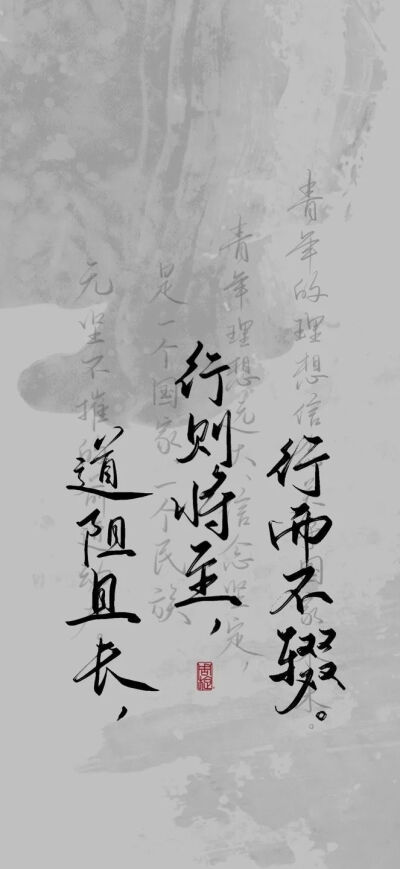 道阻且长，
行则将至，
行而不辍。
青年的理想信国家来。
青年理想远大、信念坚定，
是一个国家、一个民族
无坚不摧的前动